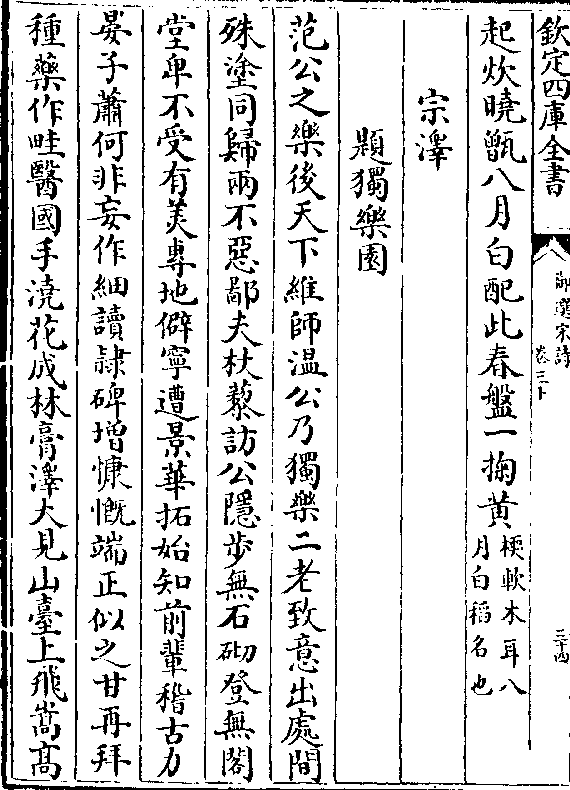 欽定四庫全書
御選宋詩
卷三十
三十四
起炊曉甑八月白配此春盤一掬黄
梗軟木耳八
月白稻名也
宗澤
題獨樂園
范公之樂後天下維師温公乃獨樂二老致意出處間
殊塗同歸兩不惡鄙夫杖藜訪公隠步無石砌登無閣
堂卑不受有美專地僻寧遭景華拓始知前輩稽古力
晏子蕭何非妄作細讀隷碑增慷慨端正似之甘再拜
種藥作畦醫國手澆花成林膏澤大見山臺上飛嵩髙